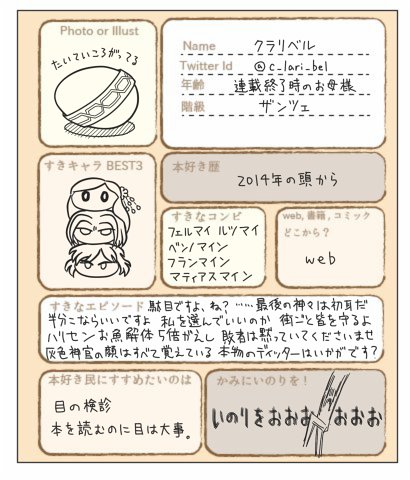 Photo or Illust
たいていころがってる
Name クラリベル
Twitter Id @c_lari_bel
年齢 連載終了時のお母様
階級 ザンツェ
すきキャラ BEST3
本好き歴
2014年の頭から
すきなコンビ
フェルマイ ルツマイ
ベンノマイン
フランマイン
マティアスマイン
web, 書籍, コミック
どこから?
web
すきなエピソード 駄目ですよ、ね? ……最後の神々は初耳だ
半分こならいいですよ 私を選んでいいのか 街ごと皆を守るよ
ハリセン お魚解体 5倍がえし 敗者は黙っていてくださいませ
灰色神官の顔はすべて覚えている 本物のディッターはいかがです?
本好き民にすすめたいのは
目の検診
本を読むのに目は大事。
かみにいのりを!
いのりをおおおおおお